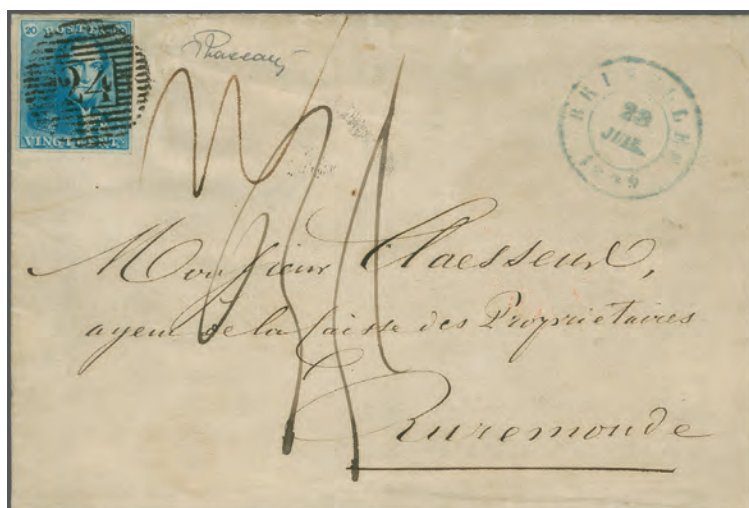 20 POSTES 20
24
VINGT CENT.
BRUXELLES
22
JUIL.
1849
Monsieur Claessens,
agent de la Caisse des Propriétaires
Ruremonde